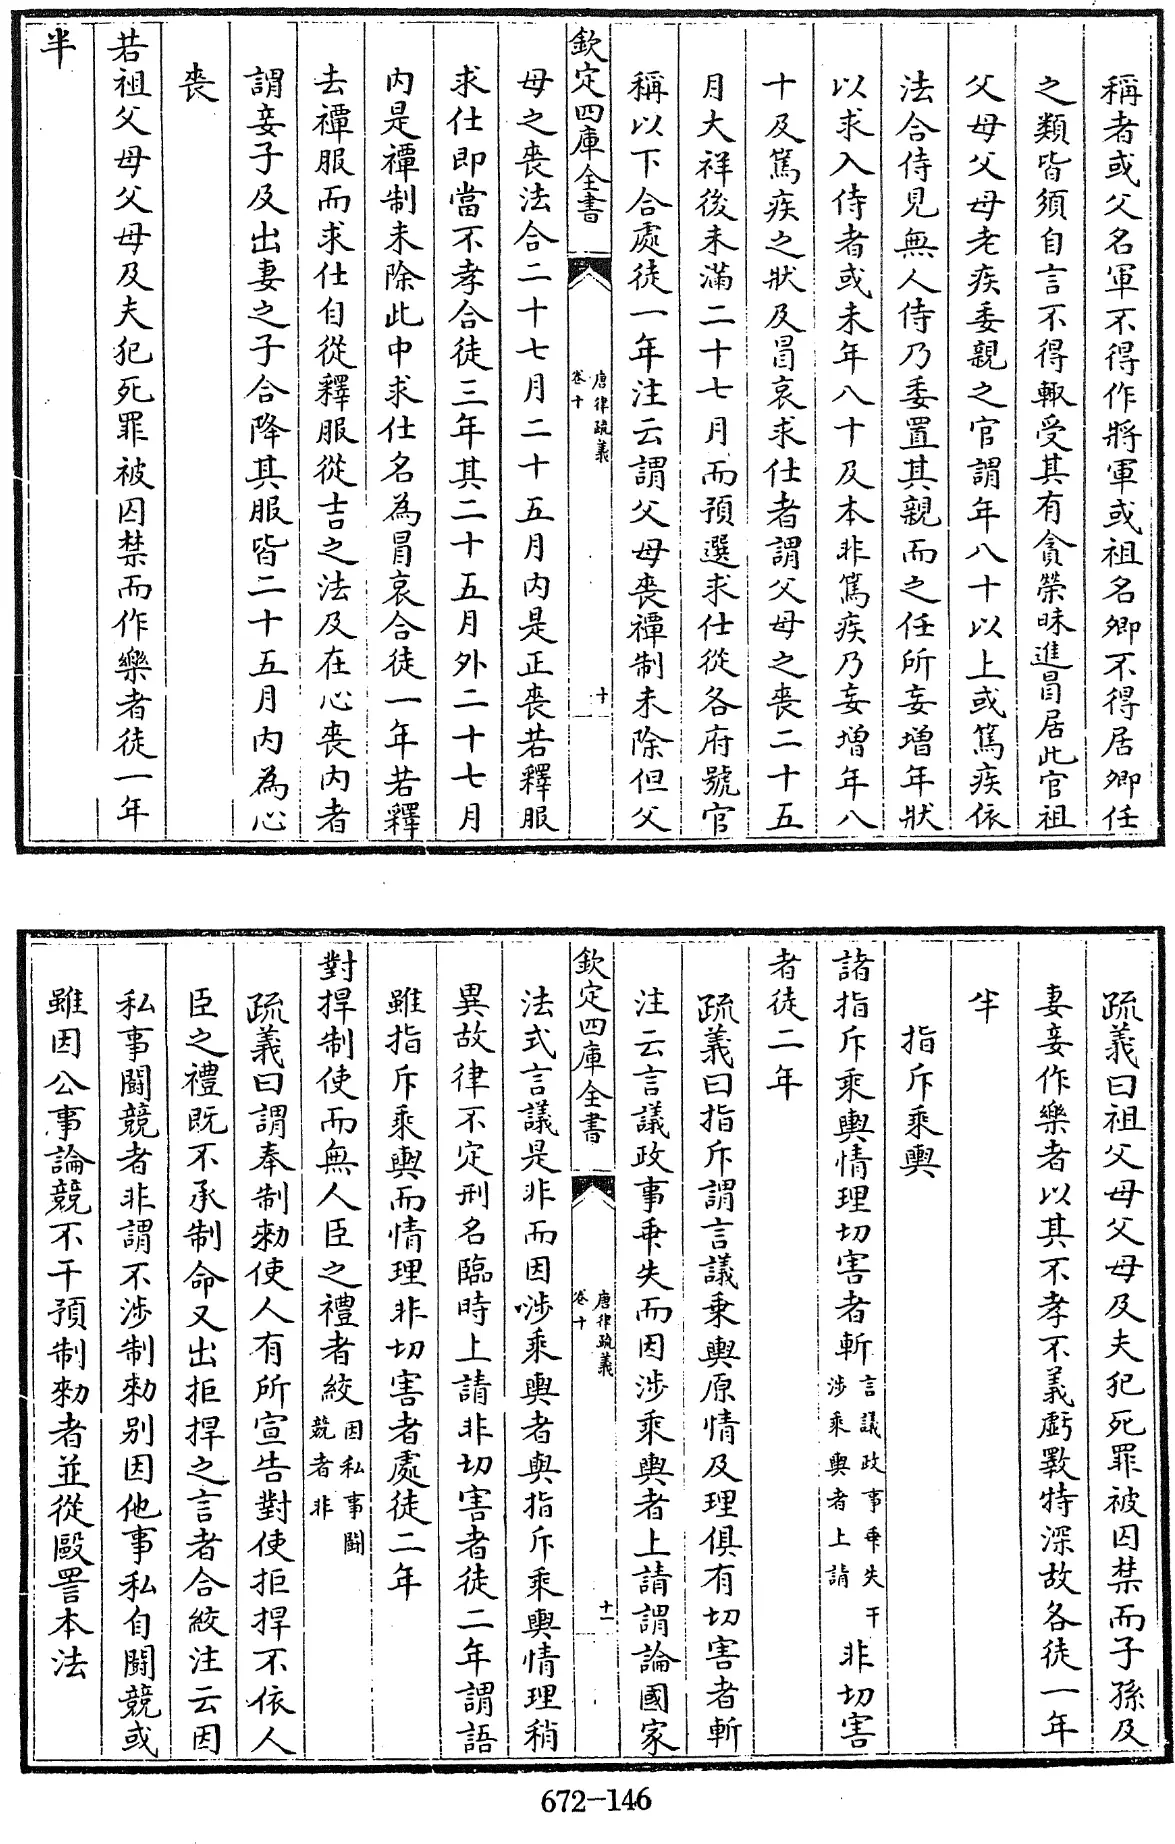 稱者或父名軍不得作將軍或祖名卿不得居卿任
之類皆須自言不得輙受其有貪榮昧進冒居此官祖
父母父母老疾委親之官謂年八十以上或篤疾依
法合侍見無人侍乃委置其親而之任所妄增年狀
以求入侍者或未年八十及本非篤疾乃妄增年八
十及篤疾之狀及冒哀求仕者謂父母之喪二十五
月大祥後未滿二十七月而預選求仕從各府號官
稱以下合處徒一年注云謂父母喪禫制未除但父
欽定四庫全書
唐律疏義
卷十
十
母之喪法合二十七月二十五月内是正喪若釋服
求仕即當不孝合徒三年其二十五月外二十七月
内是禫制未除此中求仕名為冒哀合徒一年若釋
去禫服而求仕自從釋服從吉之法及在心喪内者
謂妾子及出妻之子合降其服皆二十五月内為心
喪
若祖父母父母及夫犯死罪被囚禁而作樂者徒一年
半
疏義曰祖父母父母及夫犯死罪被囚禁而子孫及
妻妾作樂者以其不孝不義虧斁特深故各徒一年
半
指斥乘輿
諸指斥乘輿情理切害者斬言議政事乖失干
涉乘輿者上請非切害
者徒二年
疏義曰指斥謂言議乘輿原情及理俱有切害者斬
注云言議政事乖失而因涉乘輿者上請謂論國家
欽定四庫全書
唐律疏義
卷十
十一
法式言議是非而因涉乘輿者與指斥乘輿情理稍
異故律不定刑名臨時上請非切害者徒二年謂語
雖指斥乘輿而情理非切害者處徒二年
對捍制使而無人臣之禮者絞因私事鬭
競者非
疏義曰謂奉制勅使人有所宣告對使拒捍不依人
臣之禮既不承制命又出拒捍之言者合絞注云因
私事鬭競者非謂不涉制勅别因他事私自鬭競或
雖因公事論競不干預制勅者並從毆詈本法
672-146